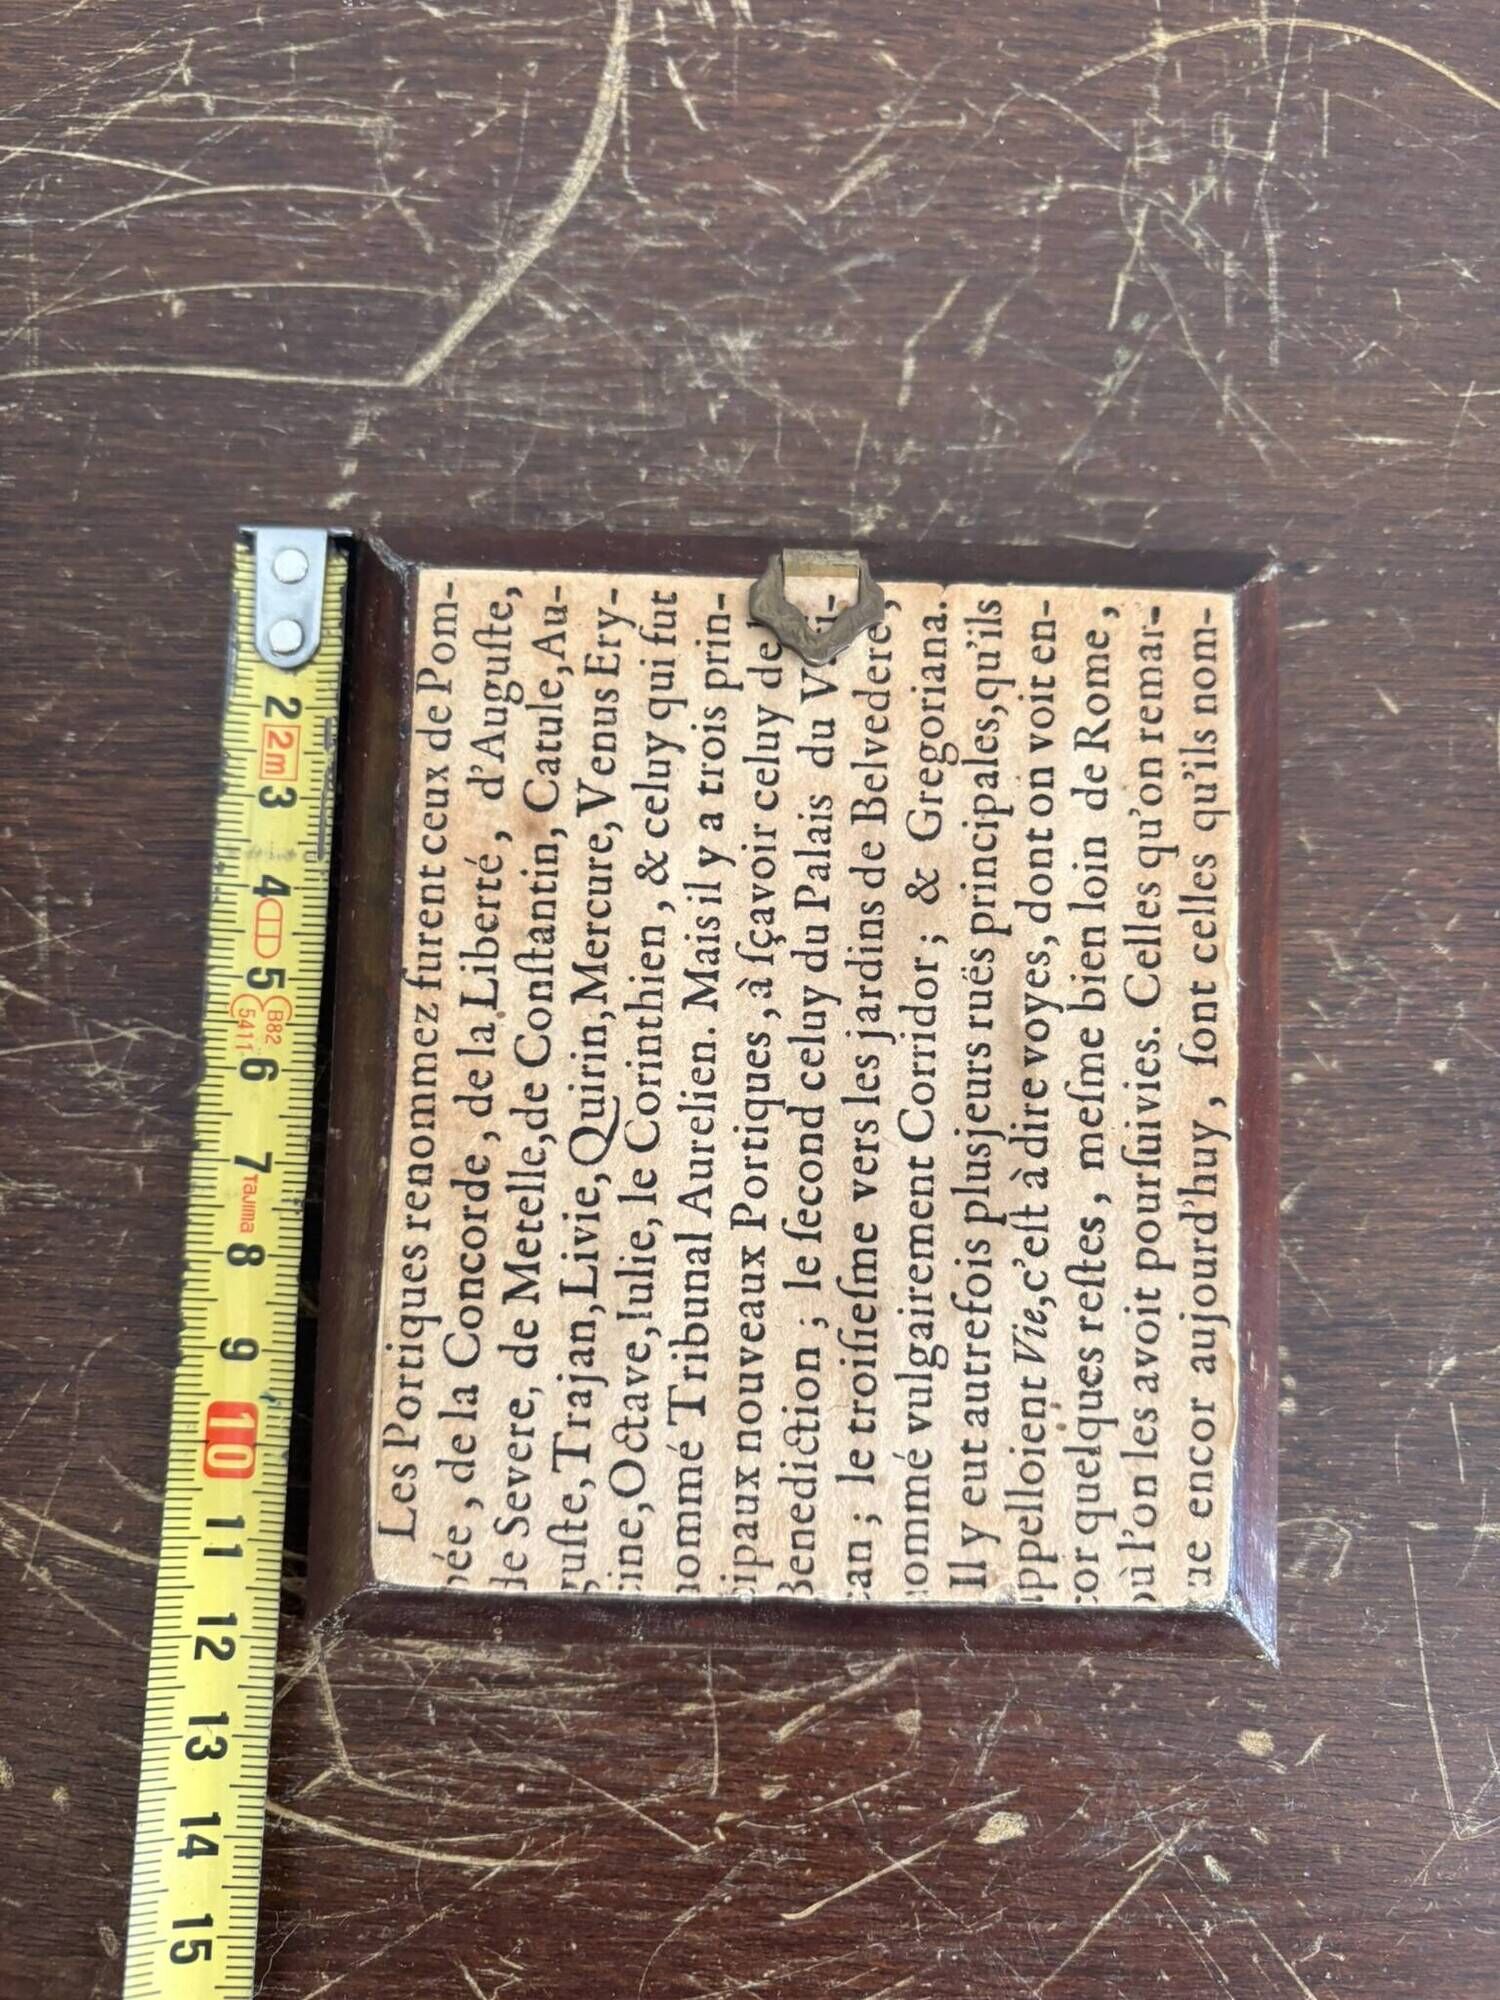 Les Portiques renommez furent ceux de Pom-
pée, de la Concorde, de la Liberté, d'Auguſte,
de Severe, de Metelle, de Conſtantin, Catule, Au-
guſte, Trajan, Livie, Quirin, Mercure, Venus Ery-
cine, Octave, Iulie, le Corinthien, & celuy qui fut
nommé Tribunal Aurelien. Mais il y a trois prin-
cipaux nouveaux Portiques, à ſçavoir celuy de
Benediction; le ſecond celuy du Palais du
can; le troiſieſme vers les jardins de Belvedere,
nommé vulgairement Corridor; & Gregoriana.
Il y eut autrefois plusjeurs ruës principales, qu'ils
appelloient Vie, c'eſt à dire voyes, dont on voit en-
cor quelques reſtes, meſme bien loin de Rome,
où l'on les avoit pourſuivies. Celles qu'on remar-
que encor aujourd'huy, ſont celles qu'ils nom-
2 2m 3 4 5 B82 5411 6 7 TaJima 8 9 10 11 12 13 14 15